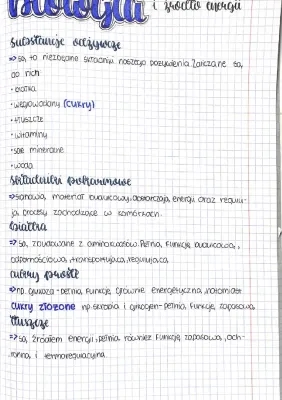 Biologia i źródło energii
Substancje odżywcze
=> są to niezbędne składniki naszego pożywienia Zaliczane są
do nich
• białka
• węglowodany (cukry)
• tłuszcze
• witaminy
• sole mineralne
• woda
składniki pokarmowe
=> stanowią materiał budulcowy, dostarczają energii oraz regulu-
ją procesy zachodzące w komórkach.
białka
=> są zbudowane z aminokwasów. Pełnią funkcję budulcową,
odpornościową, transportującą, regulującą
cukry proste
=> np. glukoza - pełnią funkcję głównie energetyczną, natomiast
cukry złożone np. skrobia i glikogen - pełnią funkcję zapasową
tłuszcze
=> są źródłem energii, pełnią również funkcję zapasową, och-
ronną i termoregulacyjną